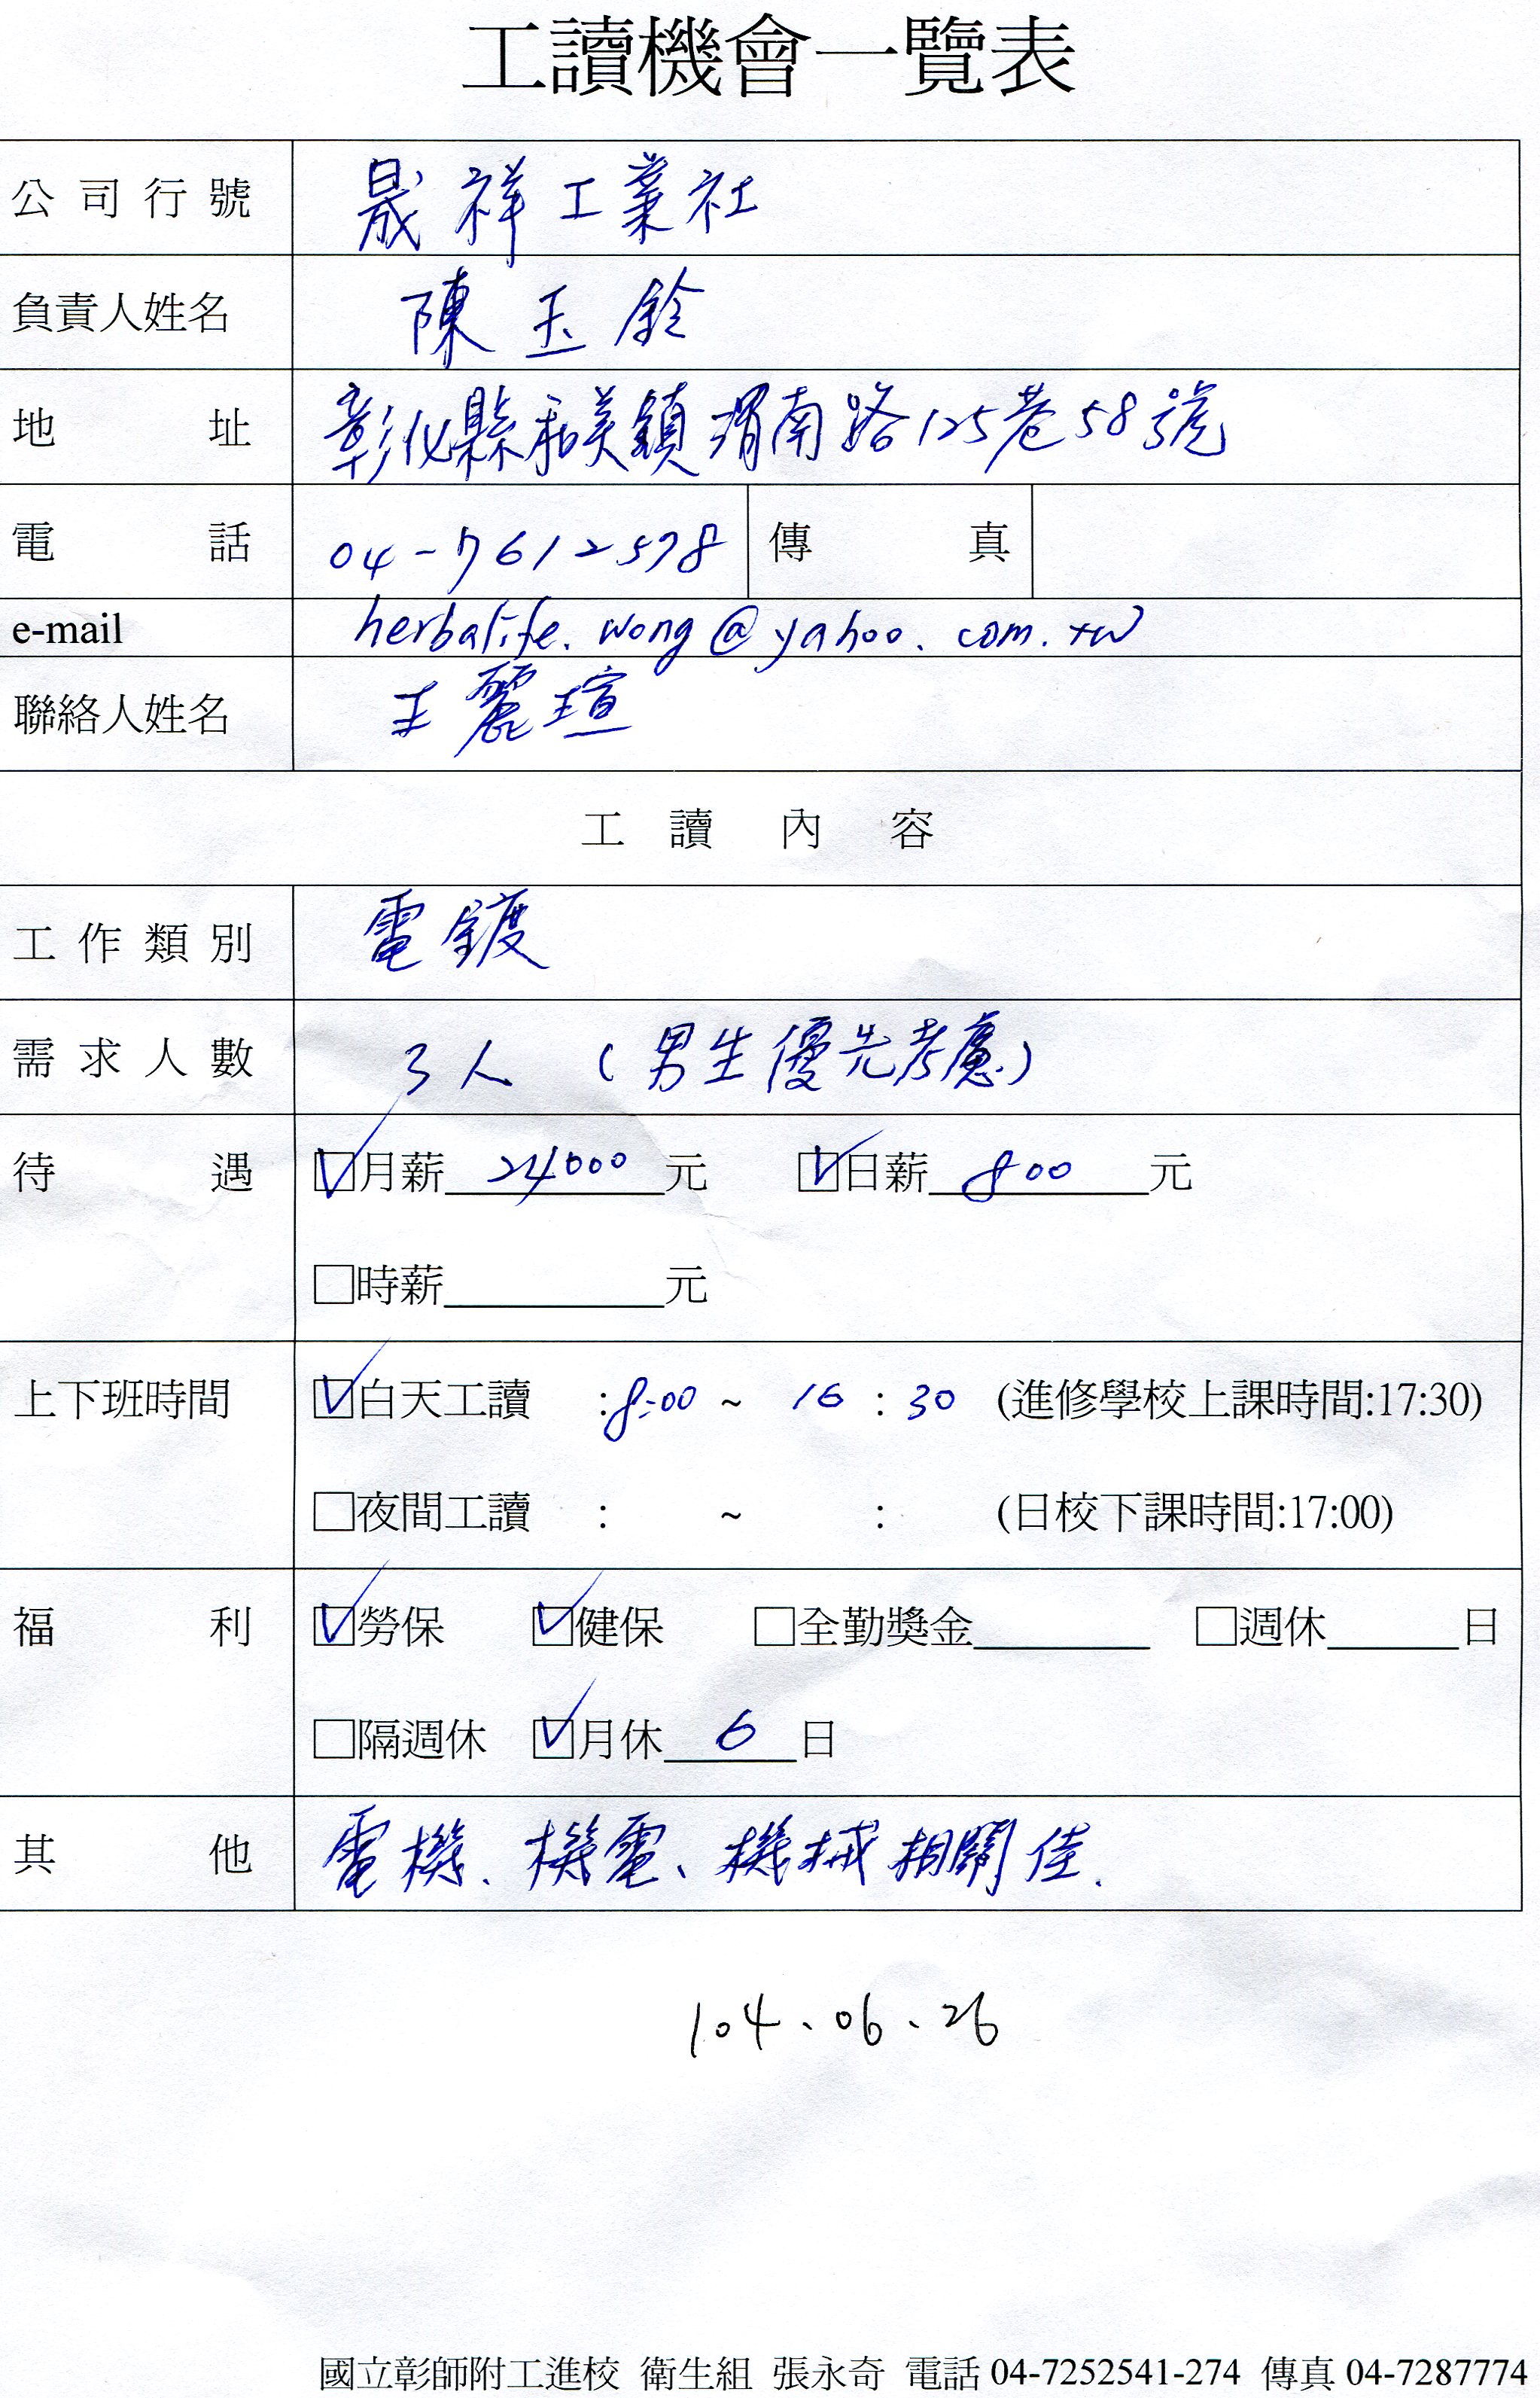 工讀機會一覽表
公司行號 晟祥工業社
負責人姓名 陳玉鈴
地址 彰化縣和美鎮渭南路125巷58號
電話 04-7612578 傳真
e-mail herbalife.wong@yahoo.com.tw
聯絡人姓名 王麗瑄
工讀內容
工作類別 電鍍
需求人數 3人 (男生優先考慮)
待遇 ☑月薪24000元 ☑日薪800元
□時薪______元
上下班時間 ☑白天工讀 :8:00 ~ 16:30 (進修學校上課時間:17:30)
□夜間工讀 : ~ : (日校下課時間:17:00)
福利 ☑勞保 ☑健保 □全勤獎金______ □週休______日
□隔週休 ☑月休6日
其他 電機、機電、機械相關佳.
104、06、26
國立彰師附工進校 衛生組 張永奇 電話 04-7252541-274 傳真 04-7287774